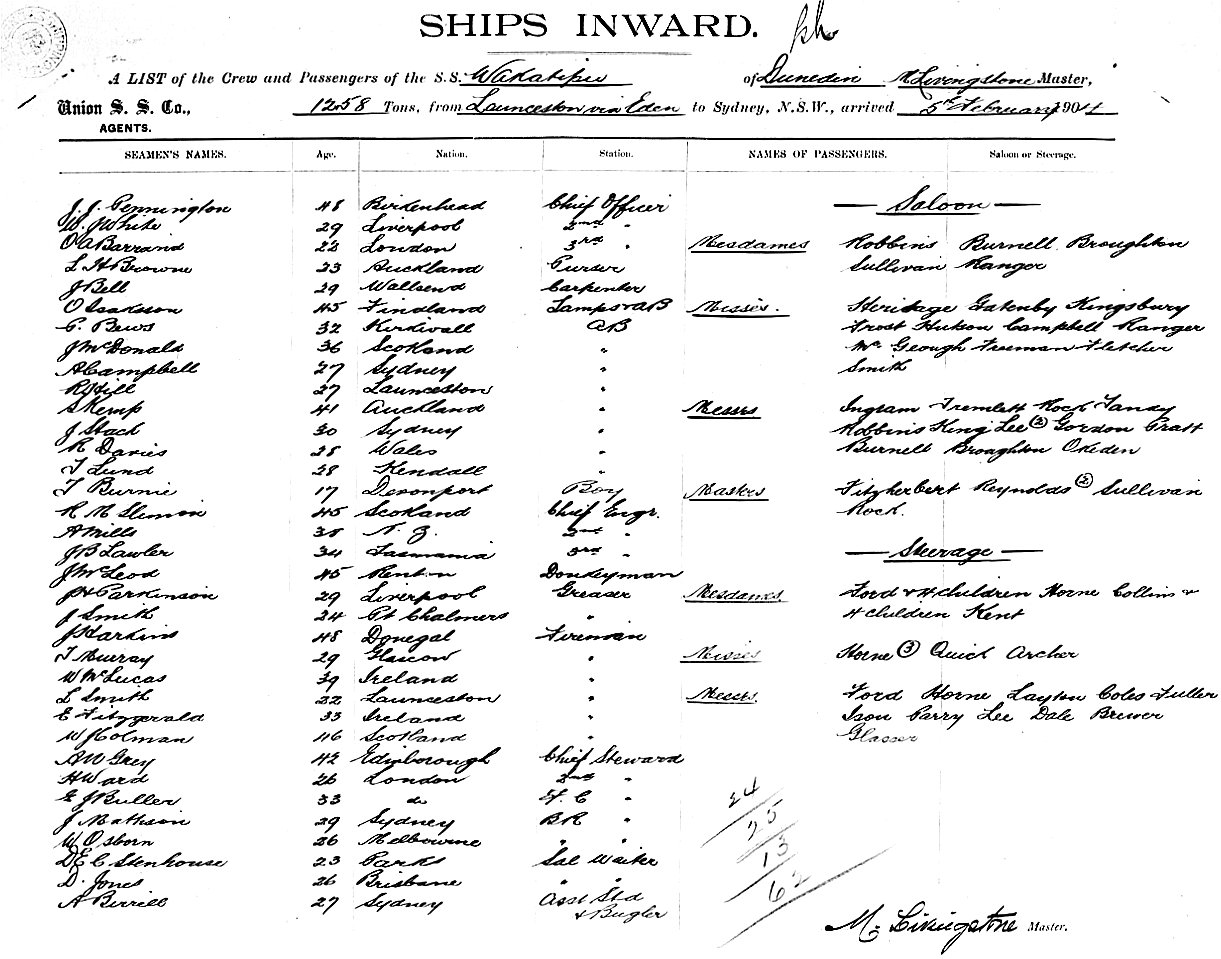 SHIPS INWARD.
A LIST of the Crew and Passengers of the S.S. Wakatipu of Dunedin M. Livingstone Master,
Union S. S. Co., 1258 Tons, from Launceston via Eden to Sydney, N.S.W., arrived 5th February 1904
AGENTS.
SEAMEN'S NAMES. Age. Nation. Station. NAMES OF PASSENGERS. Saloon or Steerage.
J. J. Pennington 48 Birkenhead Chief Officer — Saloon —
W. J White 29 Liverpool 2nd "
O A Barrand 22 London 3rd " Mesdames Robbins Burnell Broughton
L H Browne 23 Auckland Purser Sullivan Ranger
J Bell 29 Wallsend Carpenter
O Isakson 45 Findland Lamps & AB Misses. Heritage Gatenby Kingsbury
P. Bews 32 Kirkwall AB Frost Hutson Campbell Ranger
J McDonald 36 Scotland " Mc Geough Freeman Fletcher
A Campbell 27 Sydney " Smith
R Hill 27 Launceston "
S Kemp 41 Auckland " Messrs Ingram Tremlett Rock Tandy
J Stach 30 Sydney " Robbins King Lee (2) Gordon Pratt
R Davies 28 Wales " Burnell Broughton Okeden
T Lund 28 Kendall "
T Burnie 17 Devonport Boy Masters Fitzherbert Reynolds (2) Sullivan
R M Slemon 45 Scotland Chief Engr. Rock.
A Mills 35 N. Z. 2nd "
J B Lawler 34 Tasmania 3rd " — Steerage —
J McLeod 45 Renton Donkeyman
J H Parkinson 29 Liverpool Greaser Mesdames. Ford & 4 children Horne Collins &
J Smith 24 Pt Chalmers " 4 children Kent
J Harkins 48 Donegal Fireman
T Murray 29 Glascow " Misses Horne (3) Quick Archer
W McLucas 39 Ireland "
L Smith 22 Launceston " Messrs. Ford Horne Layton Coles Fuller
E Fitzgerald 33 Ireland " Ison Parry Lee Dale Brewer
W Holman 46 Scotland " Glasser
A W Grey 42 Edinborough Chief Steward
H Ward 26 London 2nd "
E J Buller 33 do F. C "
J Mathson 29 Sydney BR "
W Osborn 26 Melbourne " "
D E C Stenhouse 23 Parks Sal Waiter
D. Jones 26 Brisbane " "
A Birrell 27 Sydney Asst Std
& Bugler
24
25
13
62
M. Livingstone Master.